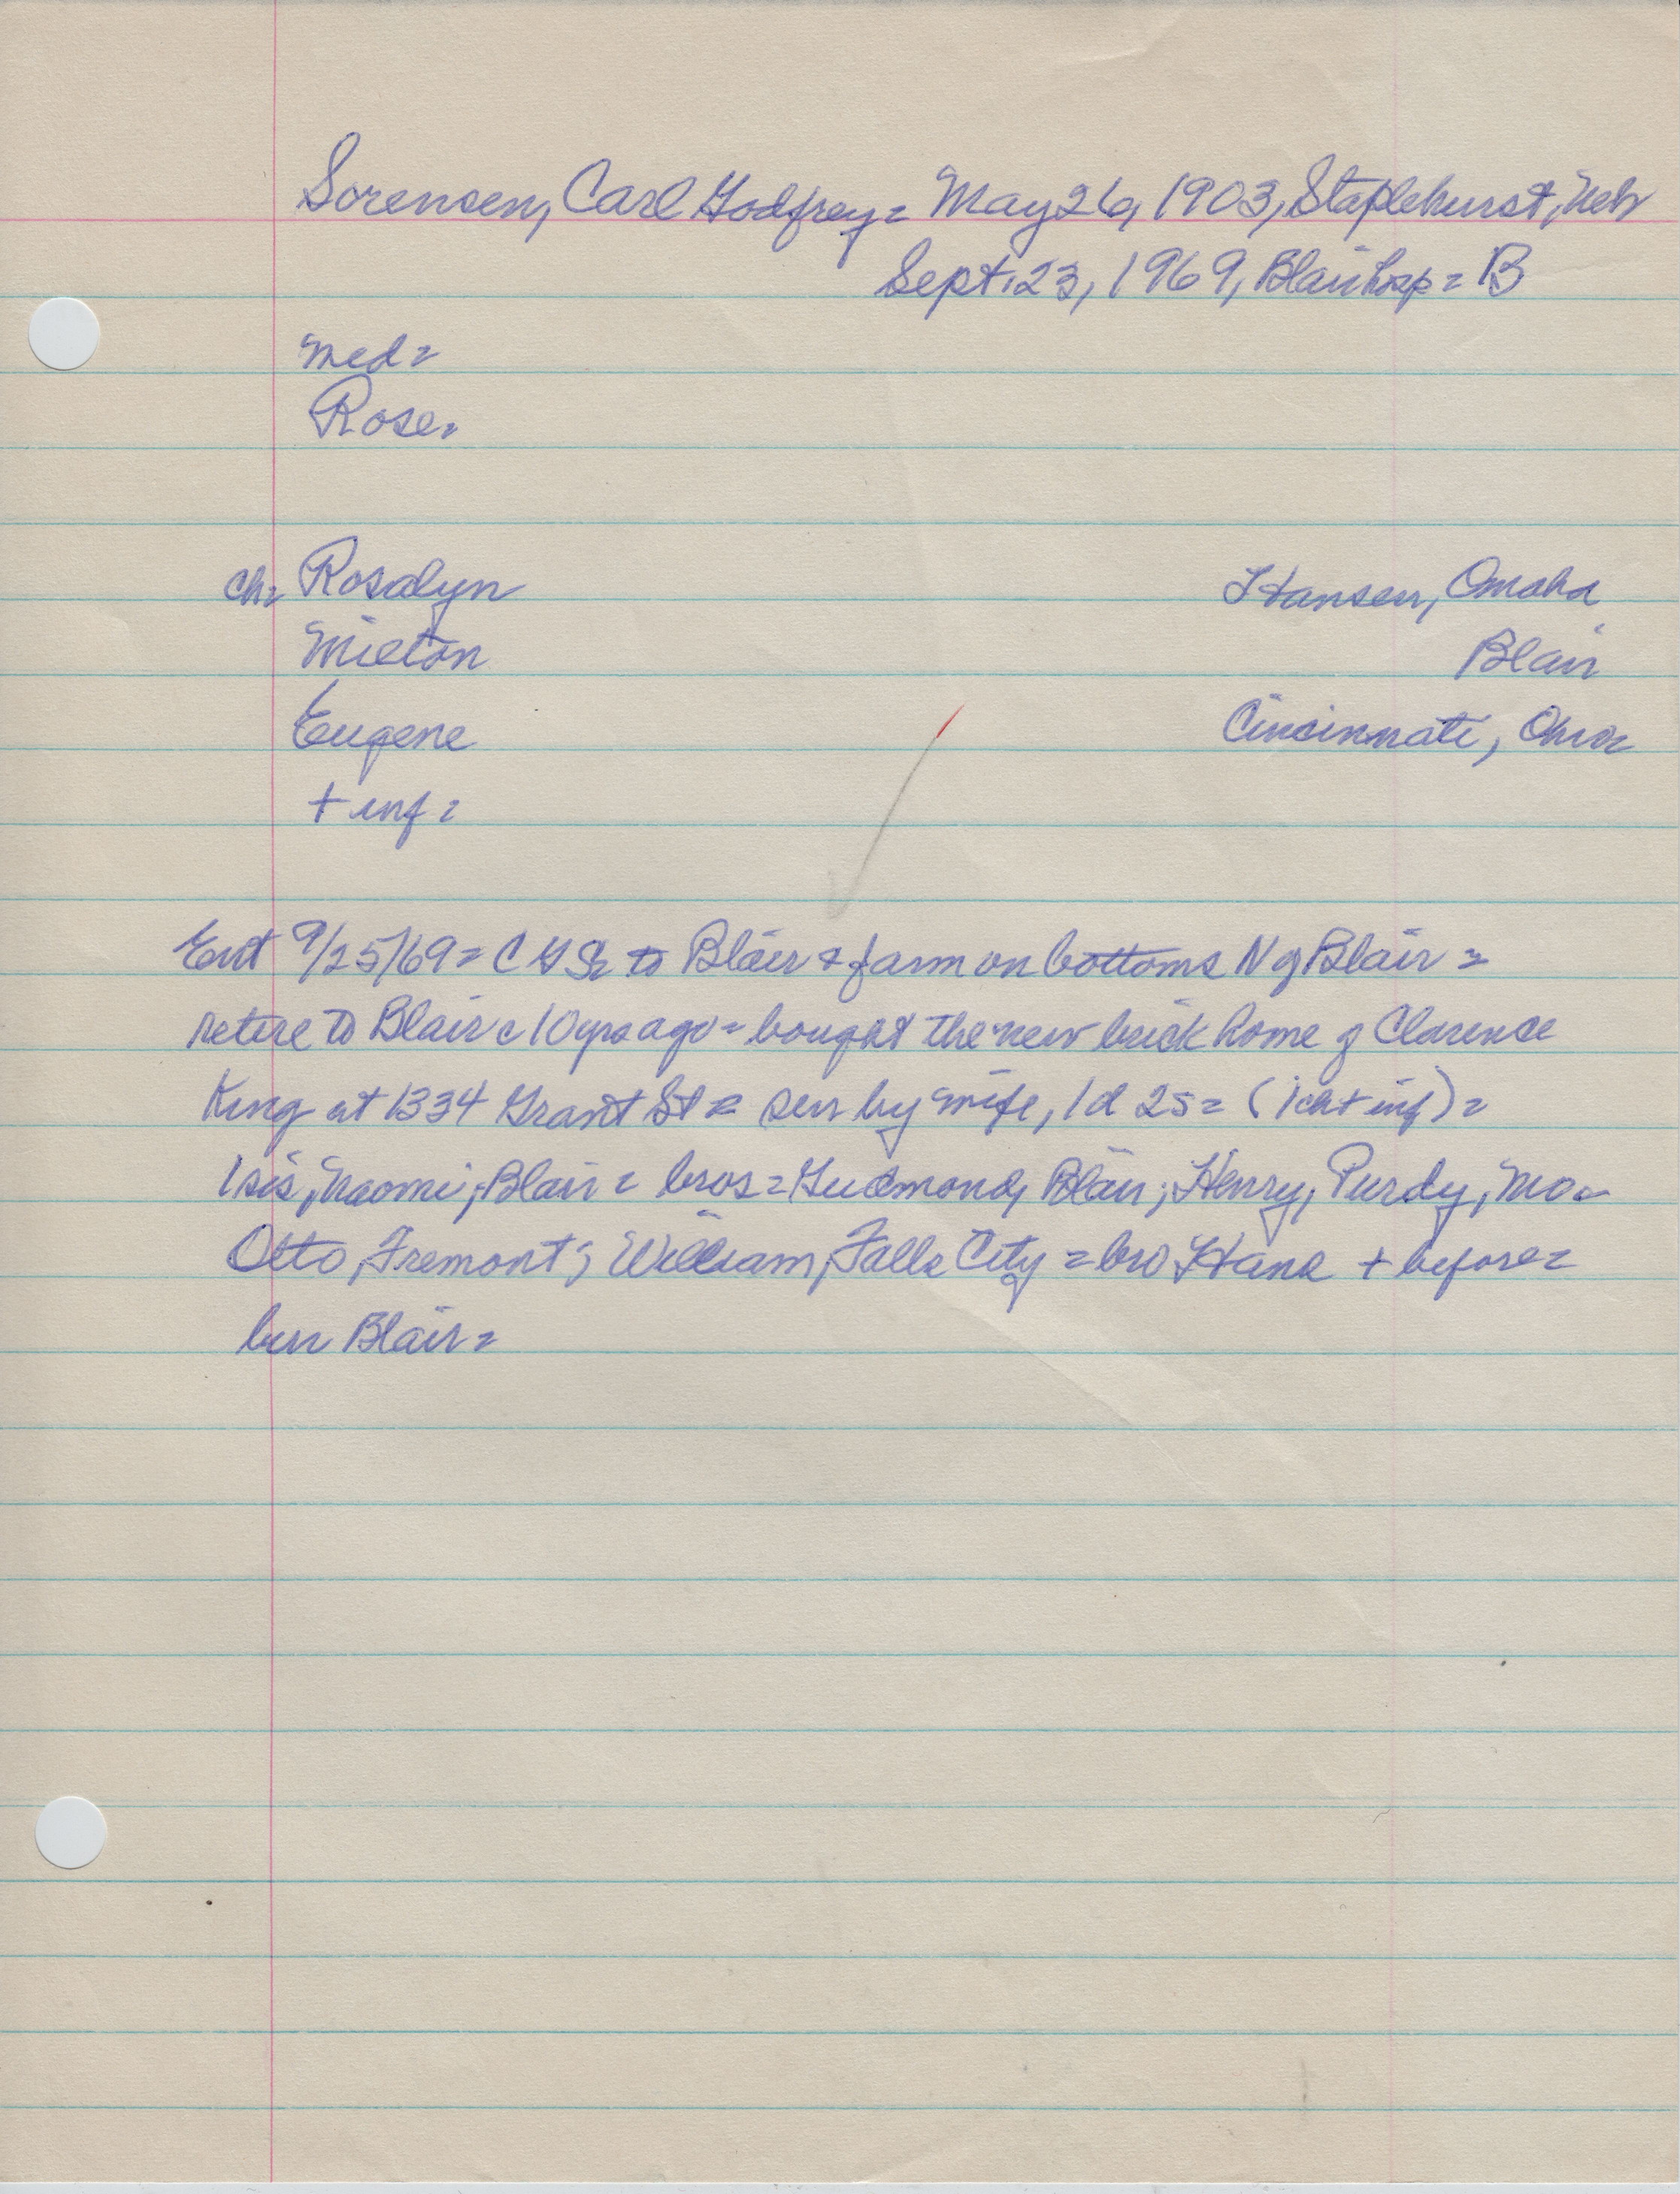 Sorensen, Carl Godfrey = May 26, 1903, Staplehurst, Neb
Sept. 23, 1969, Blair hosp = B
med =
Rose =
ch = Rosalyn Hansen, Omaha
Milton Blair
Eugene Cincinnati, Ohio
+ inf =
Ent 9/25/69 = C G S to Blair & farm on bottoms N of Blair =
retire to Blair c 10 yrs ago = bought the new brick home of Clarence
King at 1334 Grant St = sur by wife, 1d 2s = (1 ch + inf) =
1 sis, Naomi, Blair = bros = Gudmond, Blair; Henry, Purdy, Mo =
Otto, Fremont; William, Falls City = bro Hans + before =
bur Blair =